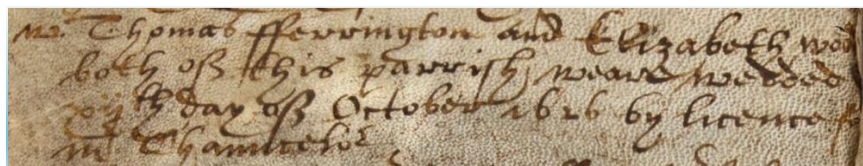 mr Thomas fferrington and Elizabeth
both of this parrish weare wedded
xijth day of October 1626 by licence
mr Chauncelor